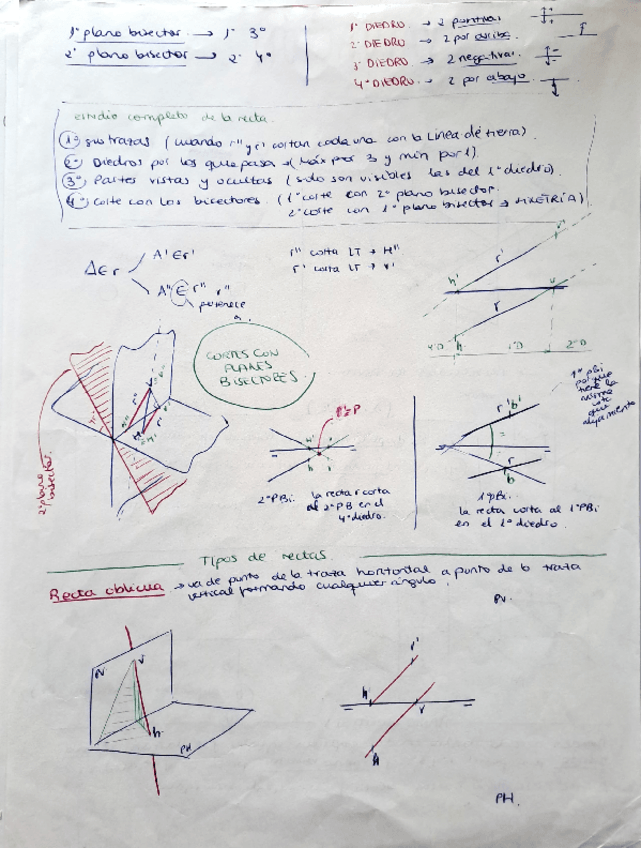 1º plano bisector → 1º 3º
2º plano bisector → 2º 4º
1º DIEDRO → 2 positivas
2º DIEDRO → 2 por arriba
3º DIEDRO → 2 negativas
4º DIEDRO → 2 por abajo
estudio completo de la recta
1º sus trazas (cuando r'' y r' cortan cada una con la Línea de tierra).
2º Diedros por los que pasa → (Máx por 3 y mín por 1).
3º Partes vistas y ocultas (solo son visibles las del 1º diedro).
4º corte con los bisectores. (1º corte con 2º plano bisector.
2º corte con 1º plano bisector → SIMETRÍA)
A ∈ r
A' ∈ r'
A'' ∈ r'' r''
pertenece a.
r'' corta LT → H''
r' corta LT → V'
r'
h'
v
r
h
4ºD
1ºD
2ºD
CORTES CON PLANOS BISECTORES.
2º plano bisector.
2ºPBi: la recta r corta al 2º PB en el 4º diedro.
r' b'
r
b
1ºPBi:
la recta corta al 1º PBi en el 1º diedro.
1º PBi porque tiene la misma cota que alejamiento
Tipos de rectas.
Recta oblicua → va de punto de la traza horizontal a punto de la traza
vertical formando cualquier ángulo.
PV.
PV
v
h
PH
r'
h'
v
h
PH.